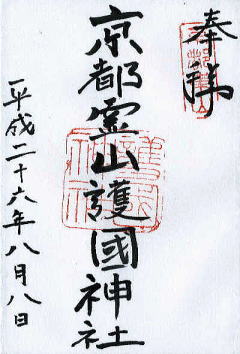 奉拝
京都霊山護國神社
平成二十六年八月八日